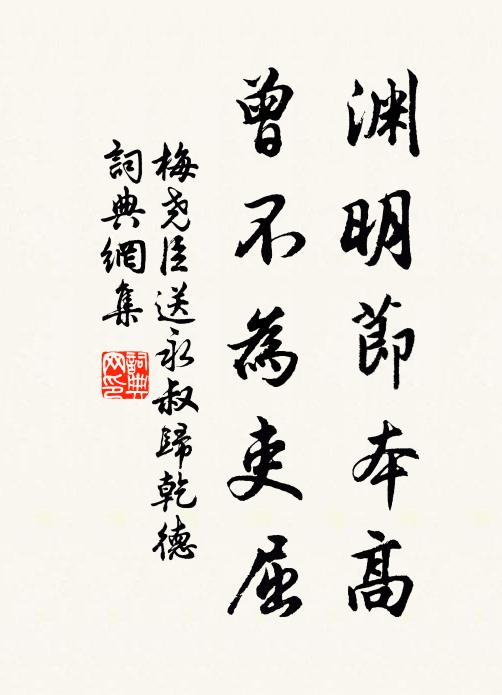 渊明節本高
曾不為吏屈
梅尧臣送永叔歸乾德
詞典網集
詞典网印